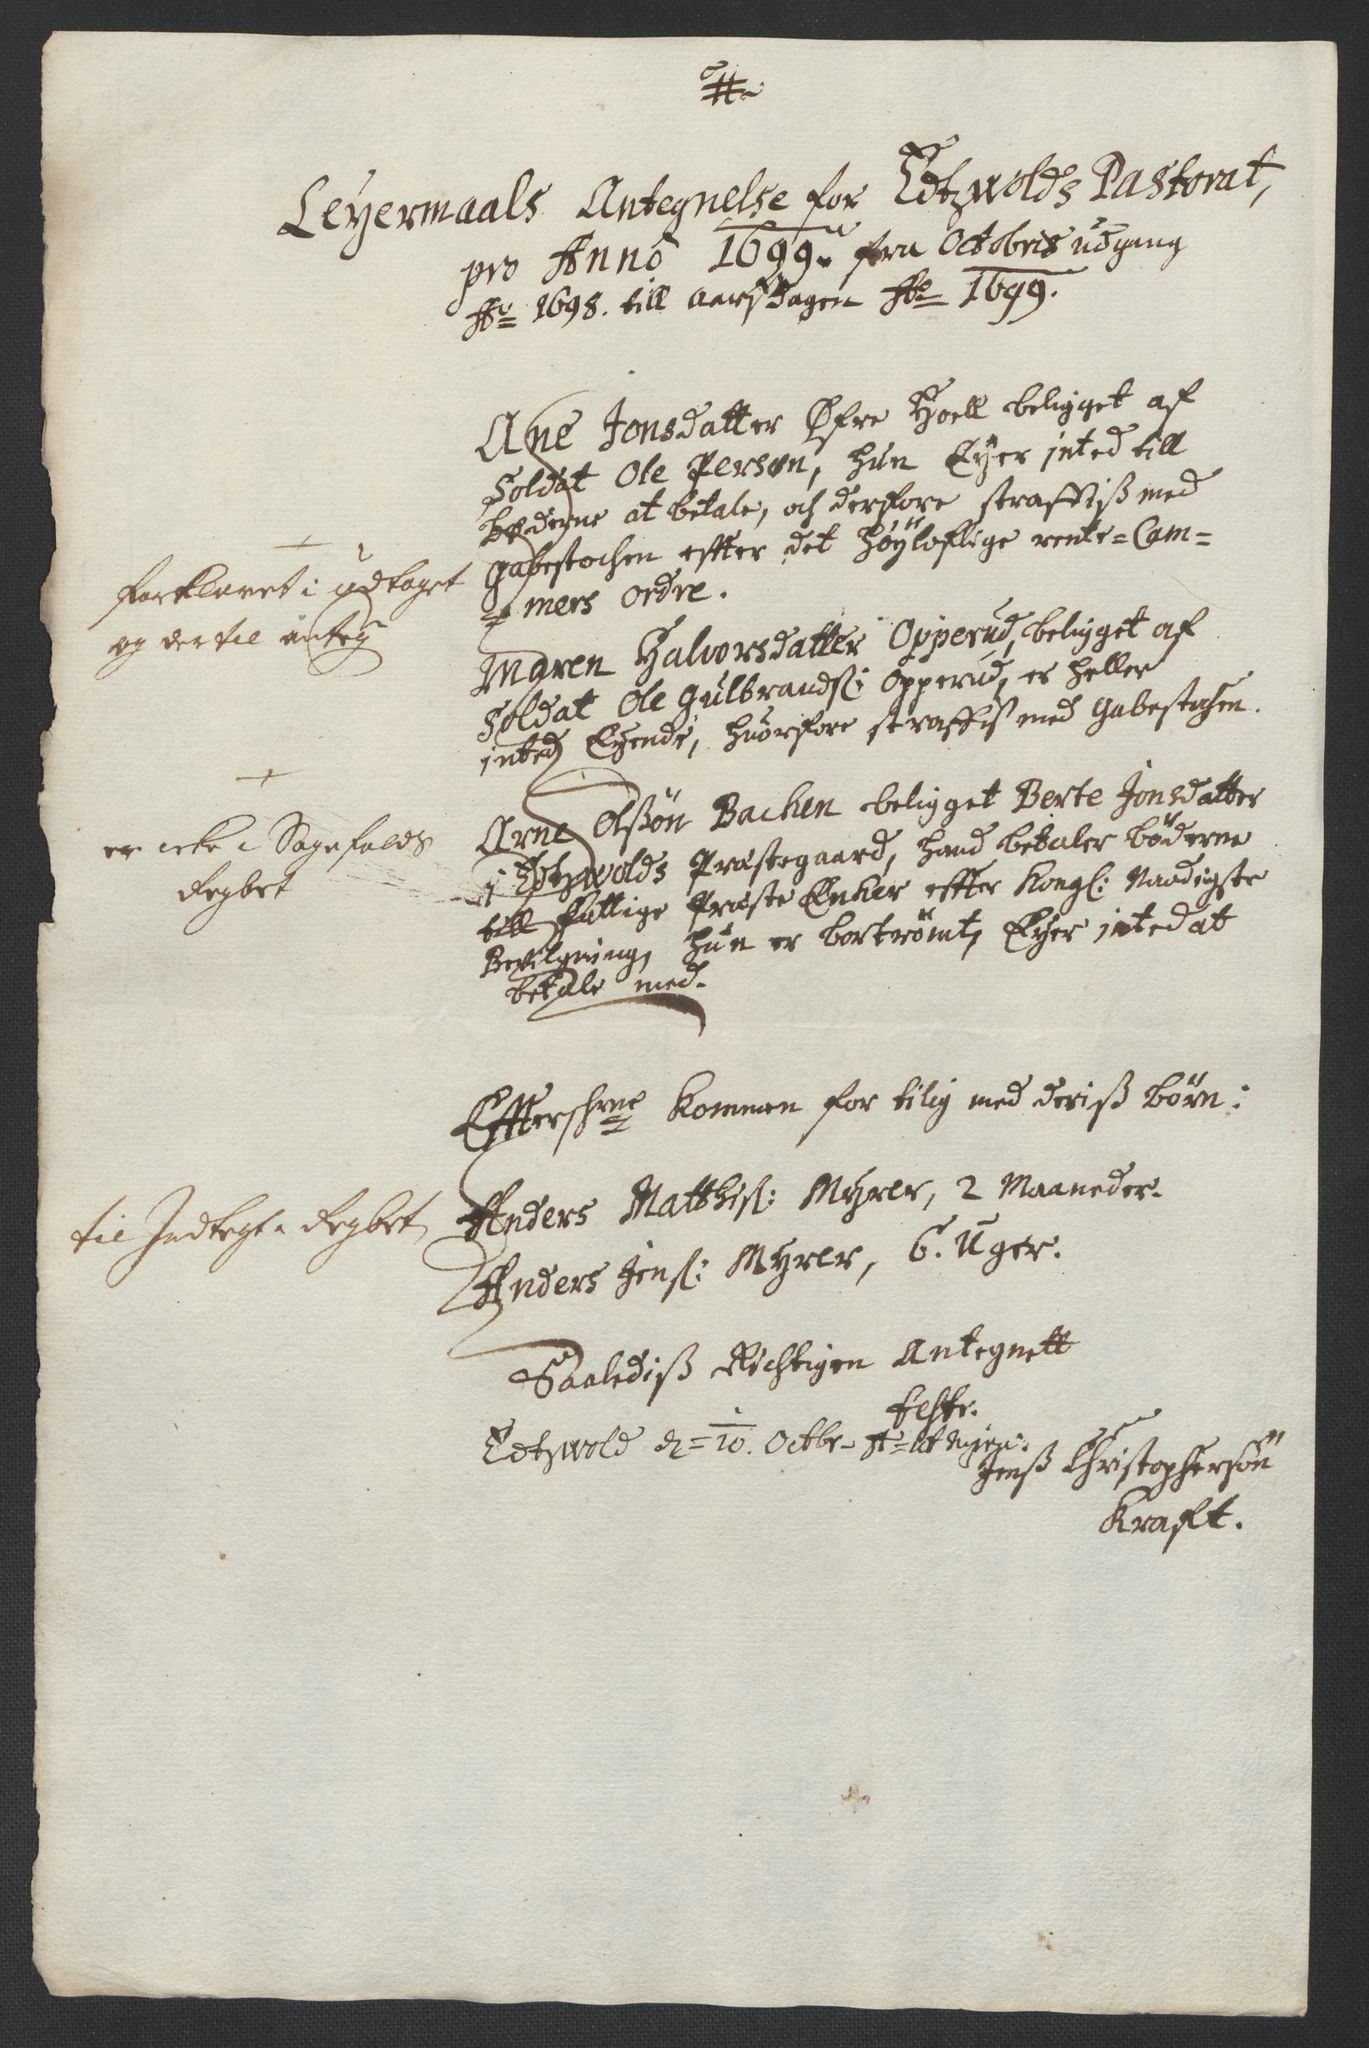 Leyermaals Antegnelse for Edtzwolds Pastorat,
pro Anno 1699. fra Octobris udgang
Ao 1698. till aarsdagen Ao 1699.
Ane Jonsdatter Øfre Hoell beligget af
Soldat Ole Persøn, hun Eyer inted till
bøderne at betale, och derfore straffiß med
gabestochen effter det høyloflige rente=Cam=
=mers Ordre.
forklaret i udtoget
og der til anteg
Maren Halvorsdatter Opperud, beligget af
Soldat Ole Gulbrandß: Opperud, er heller
inted Eyende, huorfore straffis med Gabestochen.
Arne Olßøn Bachen beligget Berte Jonsdatter
i Edtzwolds Præstegaard, hand betaler bøderne
till fattige Præste Enker effter Kongl: Naadigste
Bevilgning, hun er bortrømt, Eyer inted at
betale med.
er icke i Sagefalds
Regbet
Effterschrne Kommen for tilig med deriß børn:
Anders Matthiß: Myrer, 2 Maaneder.
Anders Jenß: Myrer, 6. Uger.
til Indtegt Regbet
Saalediß Richtigen Antegnett
testr.
Edtzwold d= 10. Octbr. A=
Jenß Christophersøn
Kraft.